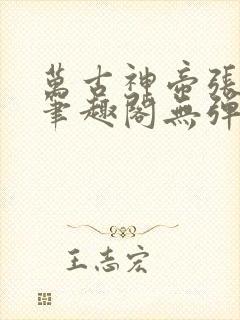 萬古神帝張
筆趣閣無彈
王志宏